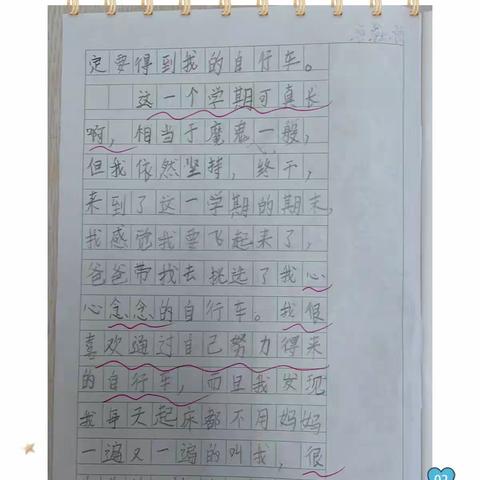 定要得到我的自行车。
这一个学期可真长
啊，相当于魔鬼一般，
但我依然坚持，终于，
来到了这一学期的期末，
我感觉我要飞起来了，
爸爸带我去挑选了我心
心念念的自行车。我很
喜欢通过自己努力得来
的自行车，而且我发现
我每天起床都不用妈妈
一遍又一遍的叫我，很
02